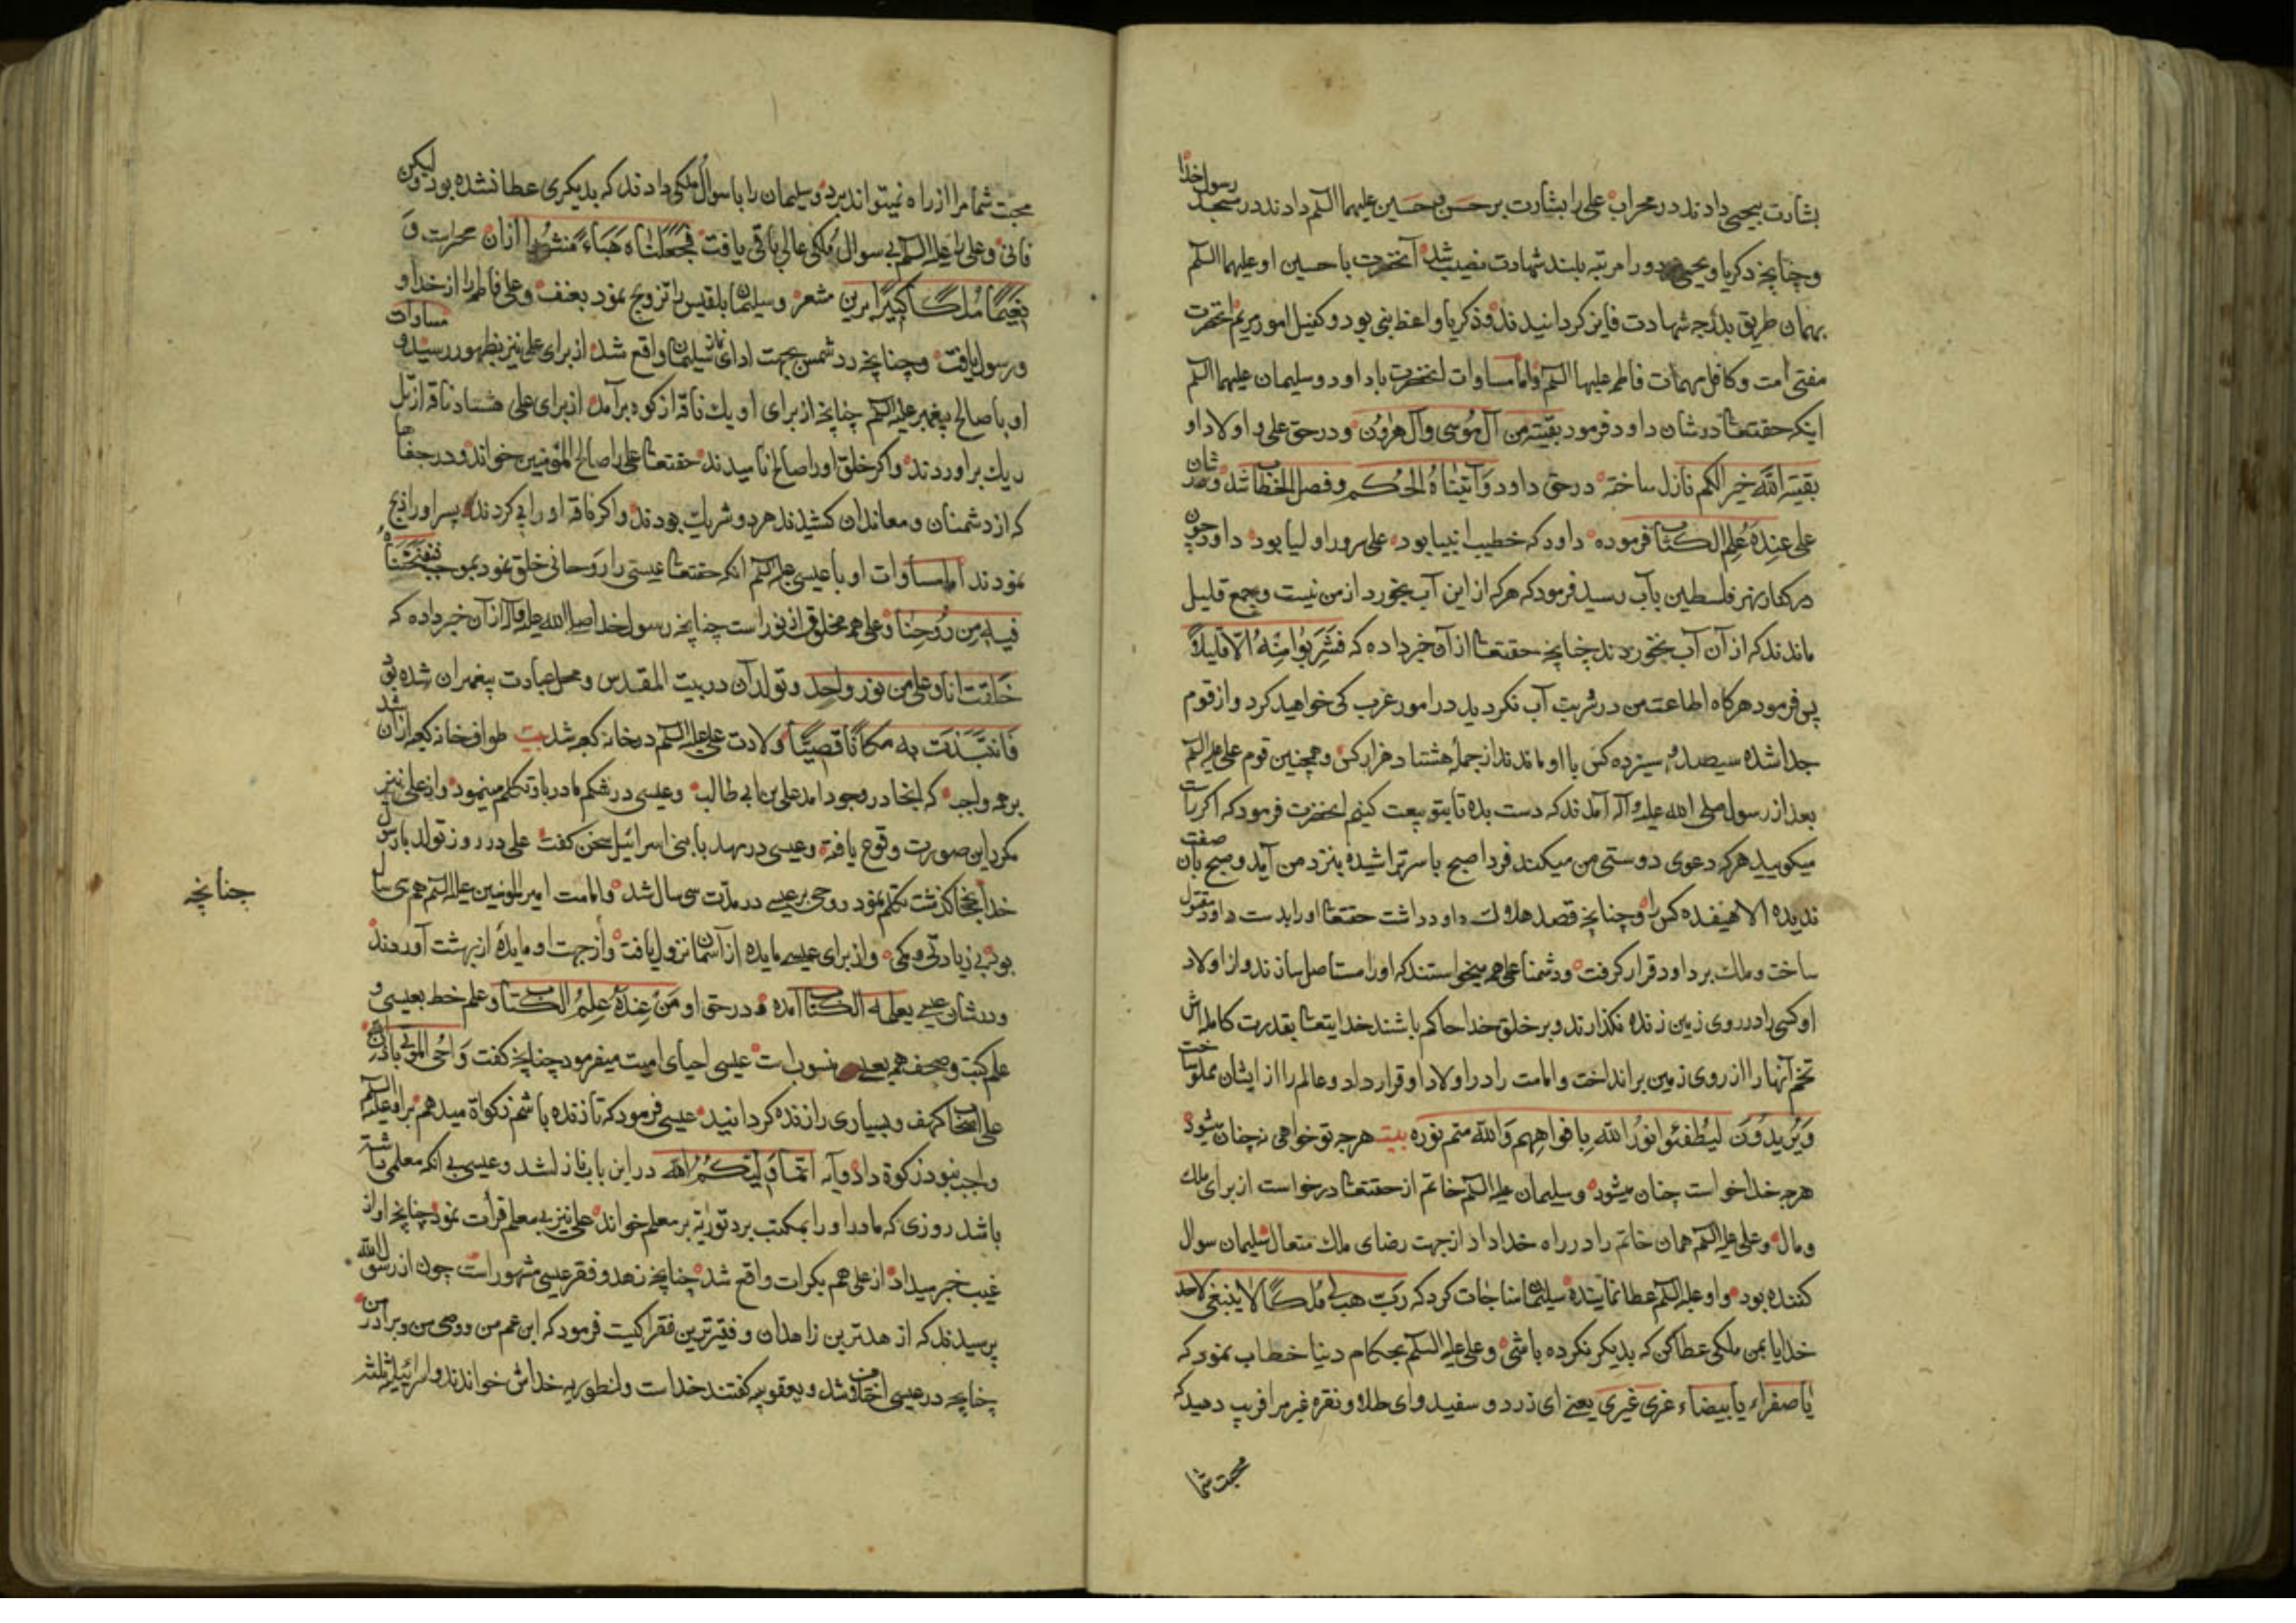 بشارت بیحیی دادند در محراب علی را بشارت بر حسن و حسین علیهما السلم دادند در مسجد رسول خدا
وچنانچه ذکریا و یحیی دو را مرتبه بلند شهادت نصیب شد آنحضرت با حسین او علیهما السلم
بهمان طریق بدرجه شهادت فایز کردانیدند و ذکریا واعظ بنی بود و کفیل امور مریم آنحضرت
مفتی امت و کافل مهمات فاطمه علیها السلم و اما مساوات آنحضرت با داود و سلیمان علیهما السلم
اینکه حقتعا در شان داود فرمود بقیته من آل موسی وآل هرون و در حق علی و اولاد او
بقیته الله خیر لکم نازل ساخته در حق داود وَآتیناهُ الحُکم وفصل الخطاب شد و در شان
علی عِندَهُ علم الکتاب فرموده داود که خطیب انبیا بود علی سرور اولیا بود داود چون
در کنار نهر فلسطین بآب رسید فرمود که هر که از این آب بخورد از من نیست و جمع قلیل
ماندند که از آن آب نخوردند چنانچه حقتعا از آن خبر داده که فَشَرِبُوا مِنْهُ الا قلیلاً
پس فرمود هرگاه اطاعت من در شربت آب نکردید در امور غرب کی خواهید کرد و از قوم
جدا شده سیصد و سیزده کس با او ماندند از جمله هشتاد هزار کس و همچنین قوم علی علیه السلم
بعد از رسول صلی الله علیه و آله آمدند که دست بده تا بتو بیعت کنیم آنحضرت فرمود که اکر راست
میکویید هر که دعوی دوستی من میکند فردا صبح با سر تراشیده بنزد من آید و صبح بآن صفت
ندیده الا هیفده کس را و چنانچه قصد هلاك داود داشت حقتعا او را بدست داود مقتول
ساخت و ملك بر داود قرار کرفت و دشمنان علی هم میخواستند که او را مستاصل سازند و از اولاد
او کسی را در روی زمین زنده نکذارند و بر خلق خدا حاکم باشند خدایتعا بقدرت کامله‌اش
تخم آنها را از روی زمین برانداخت و امامت را در اولاد او قرار داد و عالم را از ایشان مملو ساخت
وَیُریدُونَ لیُطفئوا نورُ اللهِ بِافواهِهِم وَالله متم نوره بیت هرچه تو خواهی نه چنان میشود
هرچه خدا خواست چنان میشود و سلیمان علیه السلم خاتم از حقتعا درخواست از برای ملك
و مال و علی علیه السلم همان خاتم را در راه خدا داد از جهت رضای ملك متعال سلیمان سوال
کننده بود و او علیه السلم عطا نماینده سلیمان مناجات کرد که ربّ هب لی مُلکاً لا ینبغی لاحد
خدایا بمن ملکی عطا کن که بدیکر نکرده باشی و علی علیه السلم بحکام دنیا خطاب نمود که
یا صفراء یا بیضاء غری غیری یعنی ای زرد و سفید و ای طلا و نقره غیر مرا فریب دهید که
محبت شما
محبت شما مرا از راه نمیتواند برد و سلیمان را با سوال ملکی دادند که بدیکری عطا نشده بود ولیکن
فانی و علی را علیه السلم بی سوال مُلکی عالی باقی یافت فَجَعَلناه هَبَاءً مَنثوراً از آن محرابت وَ
نَعیماً مُلکاً کبیراً برین مشعر و سلیمان بلقیس را تزویج نمود بعنف و علی فاطمه را از خدا و
و رسول یافت و چنانچه رد شمس بجهت ادای نماز سلیمان واقع شد از برای علی نیز بظهور رسید و مساوات
او با صالح پیغمبر علیه السلم چنانچه از برای او یك ناقه از کوه برآمد از برای علی هشتاد ناقه از تل
ریك براوردند و اکر خلق او را صالح نامیدند حقتعا علی را صالح المؤمنین خواند و در جفاها
که از دشمنان و معاندان کشیدند هر دو شریك بودند و اکر ناقه او را پی کردند پسر او را ذبح
نمودند اما مساوات او با عیسی علیه السلم آنکه حقتعا عیسی را روحانی خلق نمود بموجب فنفخنا
فیه مِن رُوحِنا و علی هم مخلوق از نور است چنانچه رسول خدا صلی الله علیه وآله از آن خبر داده که
خَلقت انا وعلی من نور واحِد و تولد آن در بیت المقدس و محل عبادت پیغمبران شده بود
فَانتَبَذَت به مکاناً قصِیّاً ولادت علی علیه السلم در خانه کعبه شد بیت طواف خانه کعبه از آن شد
بر همه واجب که انجا در وجود امد علی بن ابی طالب و عیسی در شکم مادر با و تکلم مینمود و از علی نیز
مکرر این صورت وقوع یافته و عیسی در مهد با بنی اسرائیل سخن کفت علی در روز تولد با رسول
خدا چنانچه کذشت تکلم نمود و وحی بر عیسی در مدّت سی سال شد و امامت امیر المومنین علیه السلم هم سی سال
چنانچه
بود بی زیادتی و کمی و از برای عیسی مایده از آسمان نزول یافت و از جهت او مایده از بهشت آوردند
و در شان عیسی یعلمه الکتاب آمده و در حق او ومَن عِندَهُ عِلمُ الکتاب و علم خط بعیسی و
علم کتب و صحف هم بعلی منسوب است عیسی احیای امیت میفرمود چنانچه کفت وَاُحی الموتی باذن الله
علی اصحاب کهف و بسیاری را زنده کردانید عیسی فرمود که تا زنده باشم زکواة میدهم بر او علیه السلم
واجب نبود زکوة داد و آیه انّما وَلیّکُمُ الله در این باب نازل شد و عیسی بی آنکه معلمی داشته
باشد روزی که مادر او را بمکتب برد توریة بر معلم خواند علی نیز بی معلم قرأت نمود چنانچه او از
غیب خبر میداد از علی هم بکرات واقع شد چنانچه زهد و فقر عیسی مشهور است چون از رسول الله
پرسیدند که از هدترین زاهدان و فقیرترین فقرا کیست فرمود که ابن عم من و وصی من و برادر من
چنانچه در عیسی اختلاف شد و یعقوبیه کفتند خداست و نسطوریه خداش خواندند و اسرائیلیه